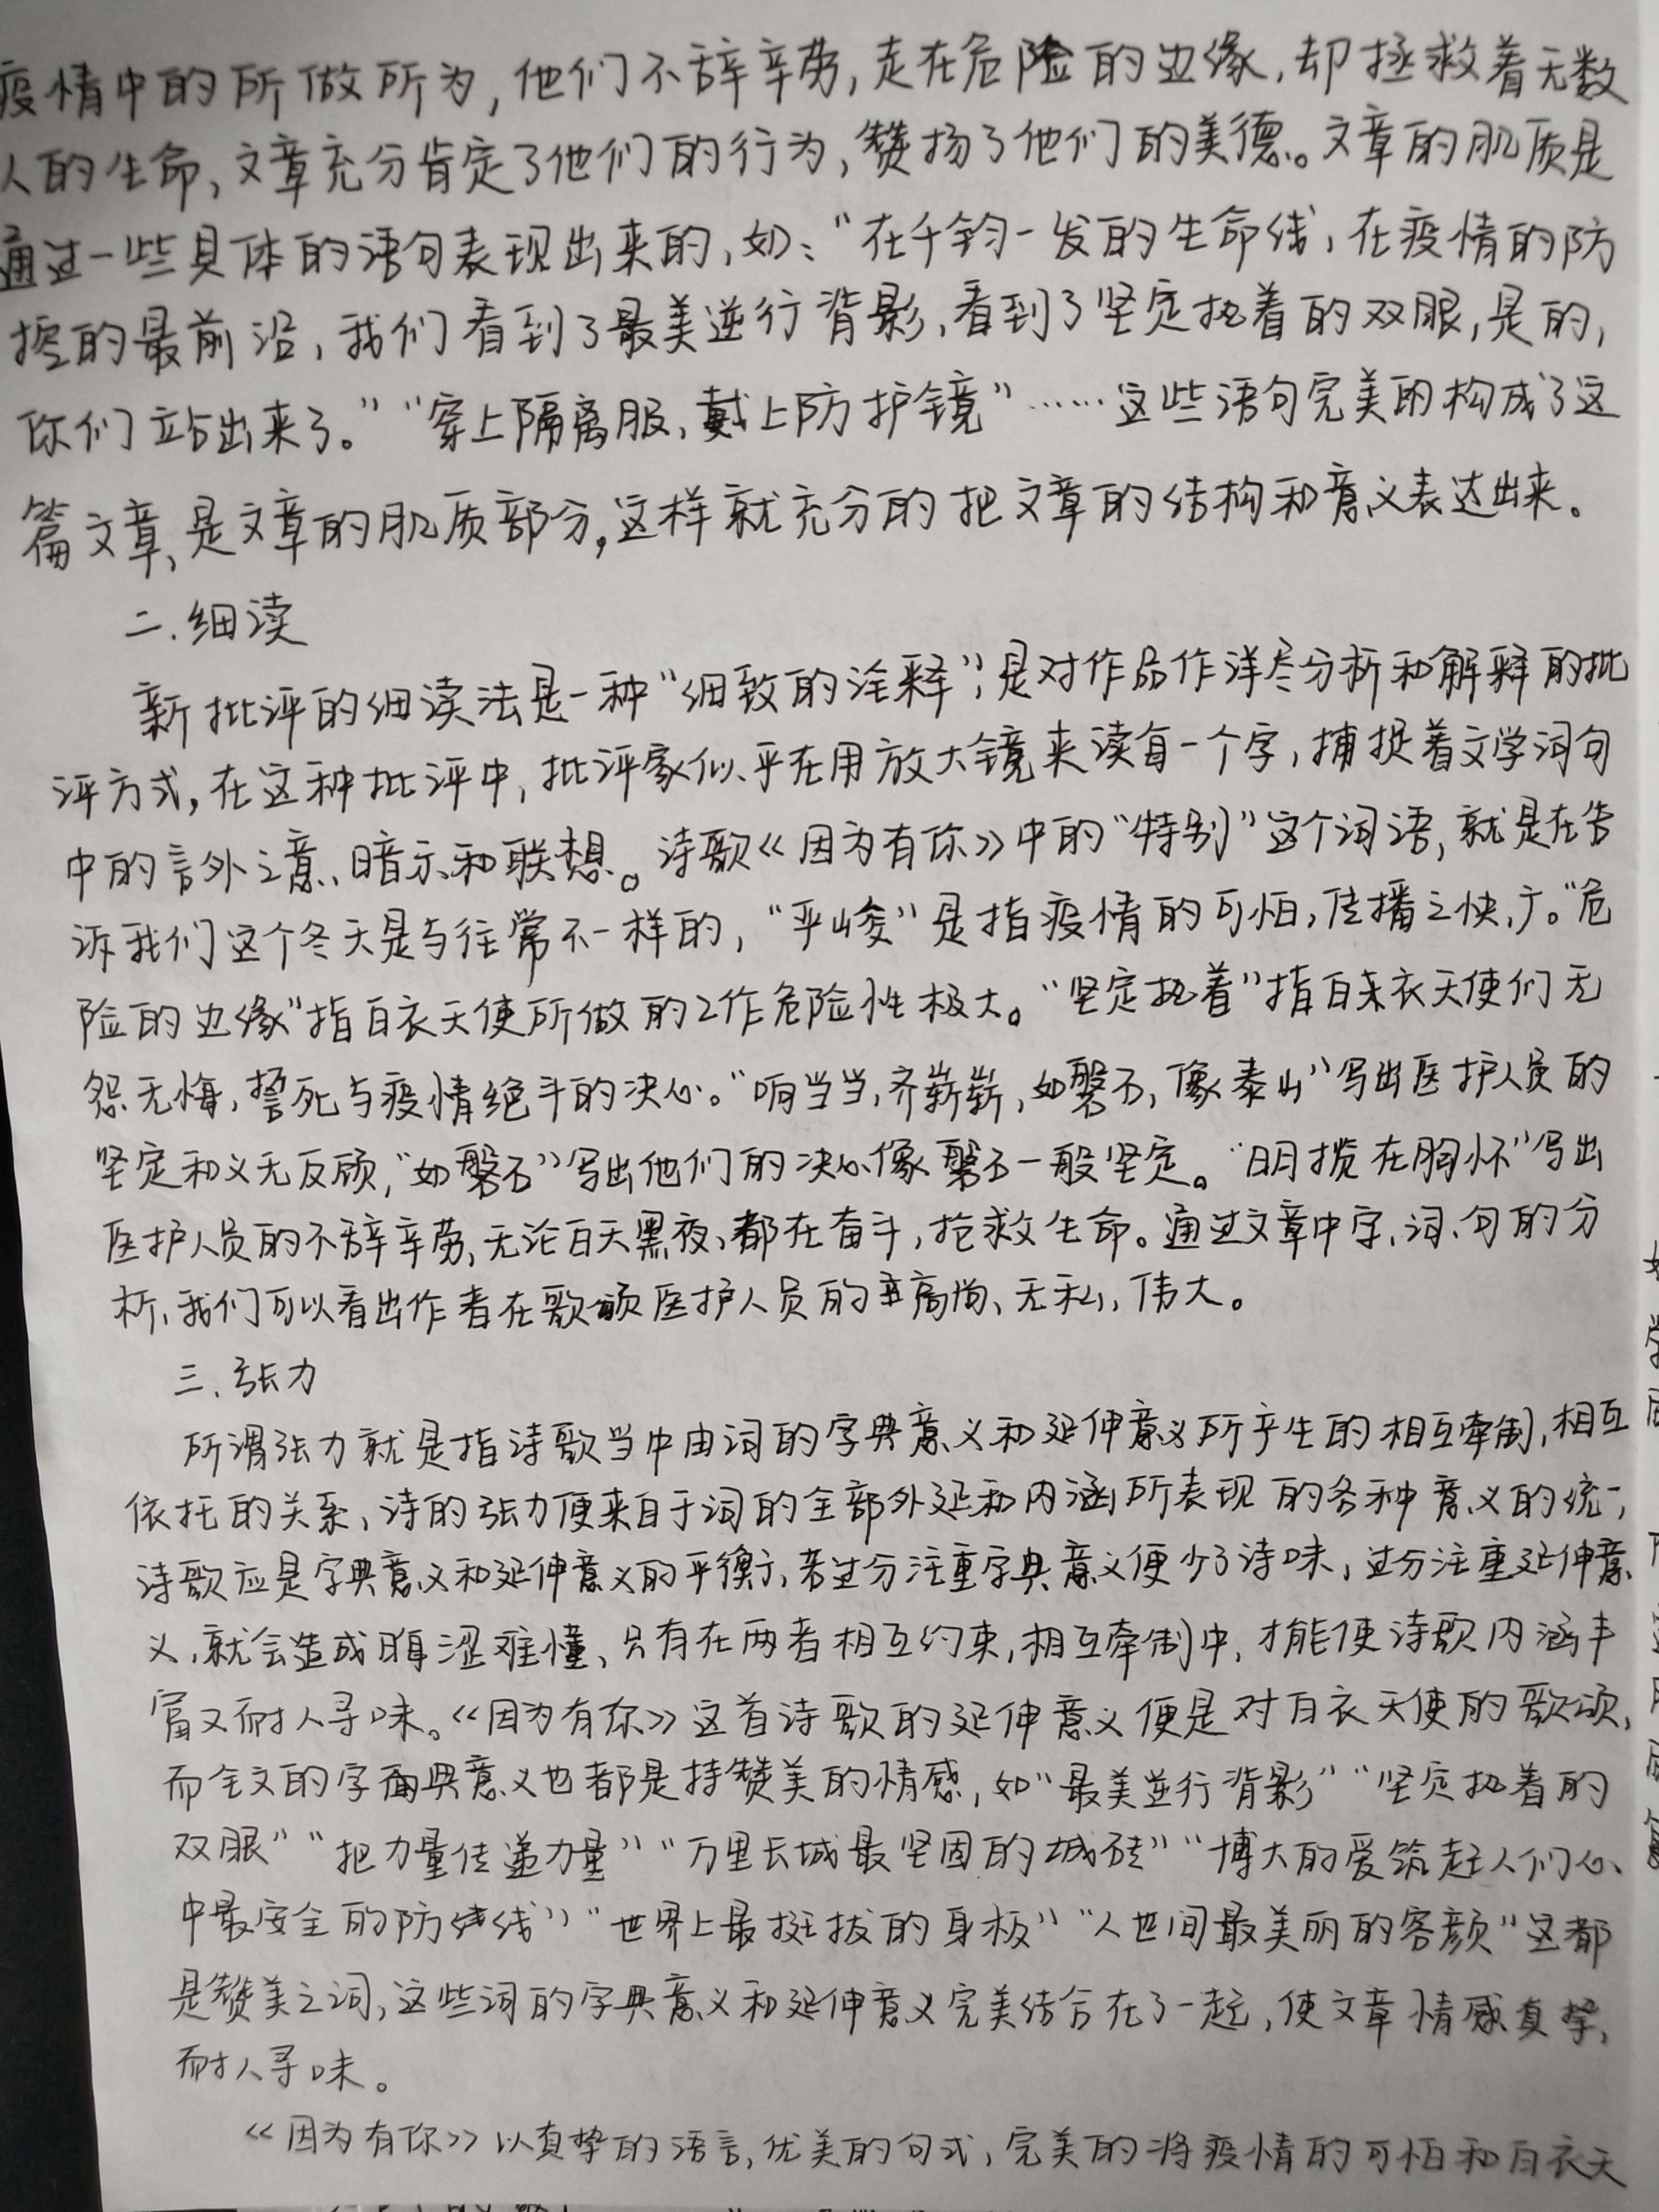 疫情中的所做所为,他们不辞辛劳,走在危险的边缘,却拯救着无数
人的生命,文章充分肯定了他们的行为,赞扬了他们的美德。文章的肌质是
通过一些具体的语句表现出来的,如:“在千钧一发的生命线,在疫情的防
控的最前沿,我们看到了最美逆行背影,看到了坚定执着的双眼,是的,
你们站出来了。”“穿上隔离服,戴上防护镜”……这些语句完美的构成了这
篇文章,是文章的肌质部分,这样就充分的把文章的结构和意义表达出来。
二.细读
新批评的细读法是一种“细致的诠释”,是对作品作详尽分析和解释的批
评方式,在这种批评中,批评家似乎在用放大镜来读每一个字,捕捉着文学词句
中的言外之意、暗示和联想。诗歌《因为有你》中的“特别”这个词语,就是在告
诉我们这个冬天是与往常不一样的,“严峻”是指疫情的可怕,传播之快,广。“危
险的边缘”指白衣天使所做的工作危险性极大。“坚定执着”指白衣天使们无
怨无悔,誓死与疫情绝斗的决心。“响当当,齐崭崭,如磐石,像泰山”写出医护人员的
坚定和义无反顾,“如磐石”写出他们的决心像磐石一般坚定。“明揽在胸怀”写出
医护人员的不辞辛劳,无论白天黑夜,都在奋斗,抢救生命。通过文章中字、词、句的分
析,我们可以看出作者在歌颂医护人员的高尚、无私,伟大。
三.张力
所谓张力就是指诗歌当中由词的字典意义和延伸意义所产生的相互牵制,相互
依托的关系,诗的张力便来自于词的全部外延和内涵所表现的各种意义的统一,
诗歌应是字典意义和延伸意义的平衡,若过分注重字典意义便少了诗味,过分注重延伸意
义,就会造成晦涩难懂,只有在两者相互约束,相互牵制中,才能使诗歌内涵丰
富又耐人寻味。《因为有你》这首诗歌的延伸意义便是对白衣天使的歌颂,
而全文的字典意义也都是持赞美的情感,如“最美逆行背影”“坚定执着的
双眼”“把力量传递力量”“万里长城最坚固的城砖”“博大的爱筑起人们心
中最安全的防线”“世界上最挺拔的身板”“人世间最美丽的容颜”这都
是赞美之词,这些词的字典意义和延伸意义完美结合在了一起,使文章情感真挚,
耐人寻味。
《因为有你》以真挚的语言,优美的句式,完美的将疫情的可怕和白衣天